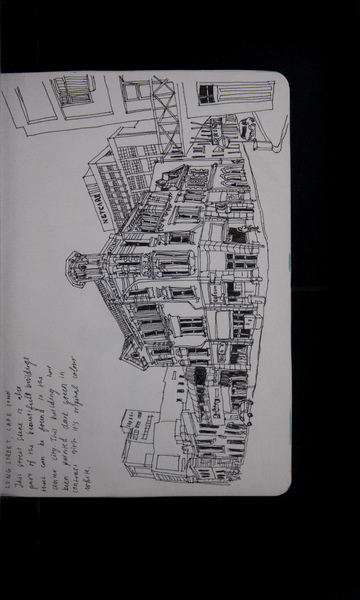 LONG STREET, CAPE TOWN
This street scene is also
part of the beautiful buildings
ones can be found in the
inner city. This building have
been painted dark green in
contrast with it's original colour
white.
NETCARE